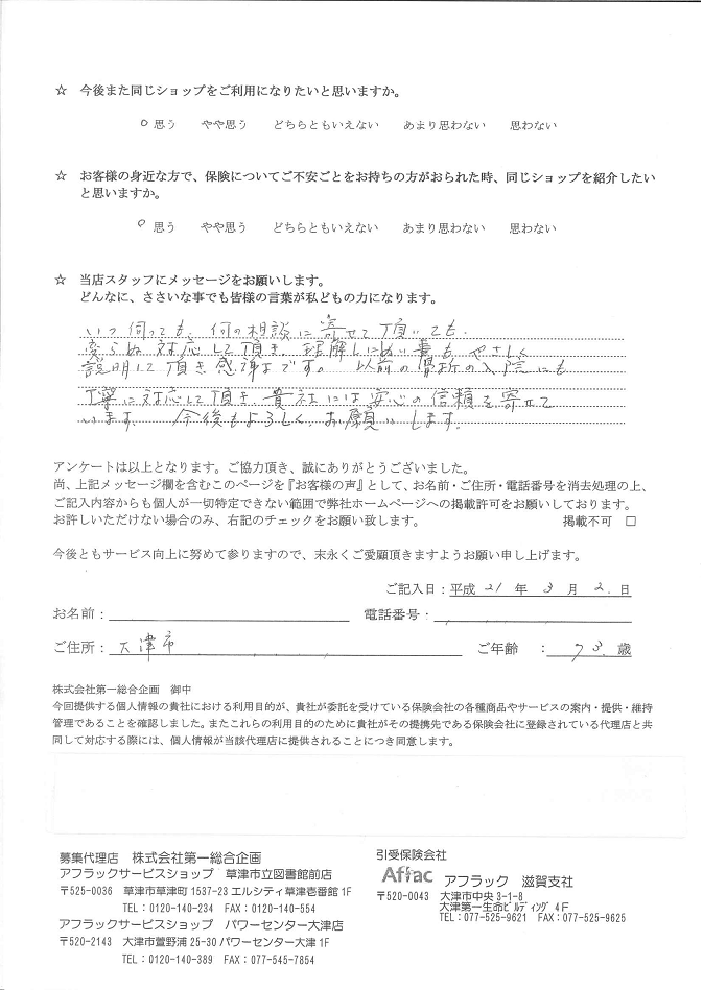 ☆ 今後また同じショップをご利用になりたいと思いますか。
○ 思う やや思う どちらともいえない あまり思わない 思わない
☆ お客様の身近な方で、保険についてご不安ごとをお持ちの方がおられた時、同じショップを紹介したい
と思いますか。
○ 思う やや思う どちらともいえない あまり思わない 思わない
☆ 当店スタッフにメッセージをお願いします。
どんなに、ささいな事でも皆様の言葉が私どもの力になります。
いつ伺っても、何の相談に寄せて頂いても、
変らぬ対応して頂き、理解しにくい事も やさしく
説明して頂き感謝です。 以前の骨折の入院にも
丁寧に対応して頂き、貴社には安心の信頼を寄せて
います。 今後もよろしくお願いします。
アンケートは以上となります。ご協力頂き、誠にありがとうございました。
尚、上記メッセージ欄を含むこのページを『お客様の声』として、お名前・ご住所・電話番号を消去処理の上、
ご記入内容からも個人が一切特定できない範囲で弊社ホームページへの掲載許可をお願いしております。
お許しいただけない場合のみ、右記のチェックをお願い致します。 掲載不可 □
今後ともサービス向上に努めて参りますので、末永くご愛顧頂きますようお願い申し上げます。
ご記入日：平成 21 年 3 月 2 日
お名前： 電話番号：
ご住所： 大津市 ご年齢 ： 73 歳
株式会社第一総合企画 御中
今回提供する個人情報の貴社における利用目的が、貴社が委託を受けている保険会社の各種商品やサービスの案内・提供・維持
管理であることを確認しました。またこれらの利用目的のために貴社がその提携先である保険会社に登録されている代理店と共
同して対応する際には、個人情報が当該代理店に提供されることにつき同意します。
募集代理店 株式会社第一総合企画
アフラックサービスショップ 草津市立図書館前店
〒525-0036 草津市草津町1537-23エルシティ草津壱番館1F
TEL：0120-140-234 FAX：0120-140-554
アフラックサービスショップ パワーセンター大津店
〒520-2143 大津市萱野浦25-30パワーセンター大津1F
TEL：0120-140-389 FAX：077-545-7854
引受保険会社
Aflac アフラック 滋賀支社
〒520-0043 大津市中央3-1-8
大津第一生命ビルディング4F
TEL：077-525-9621 FAX：077-525-9625